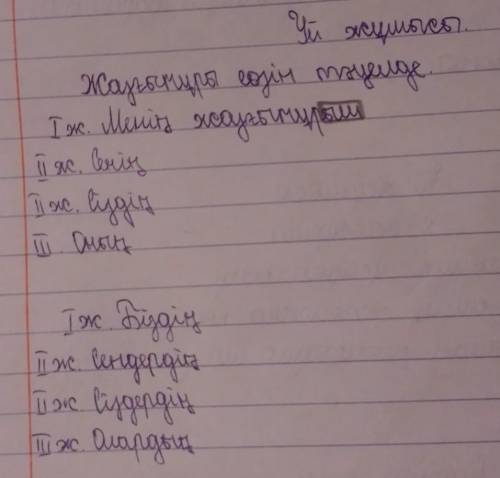 Үй жұмысы.
Жаңғыңұры сөзін тәуелде.
I ж. Менің жаңғыңұрым
II ж. Сенің
II ж. Сіздің
III. Оның
I ж. Біздің
II ж. Сендердің
II ж. Сіздердің
III ж. Олардың